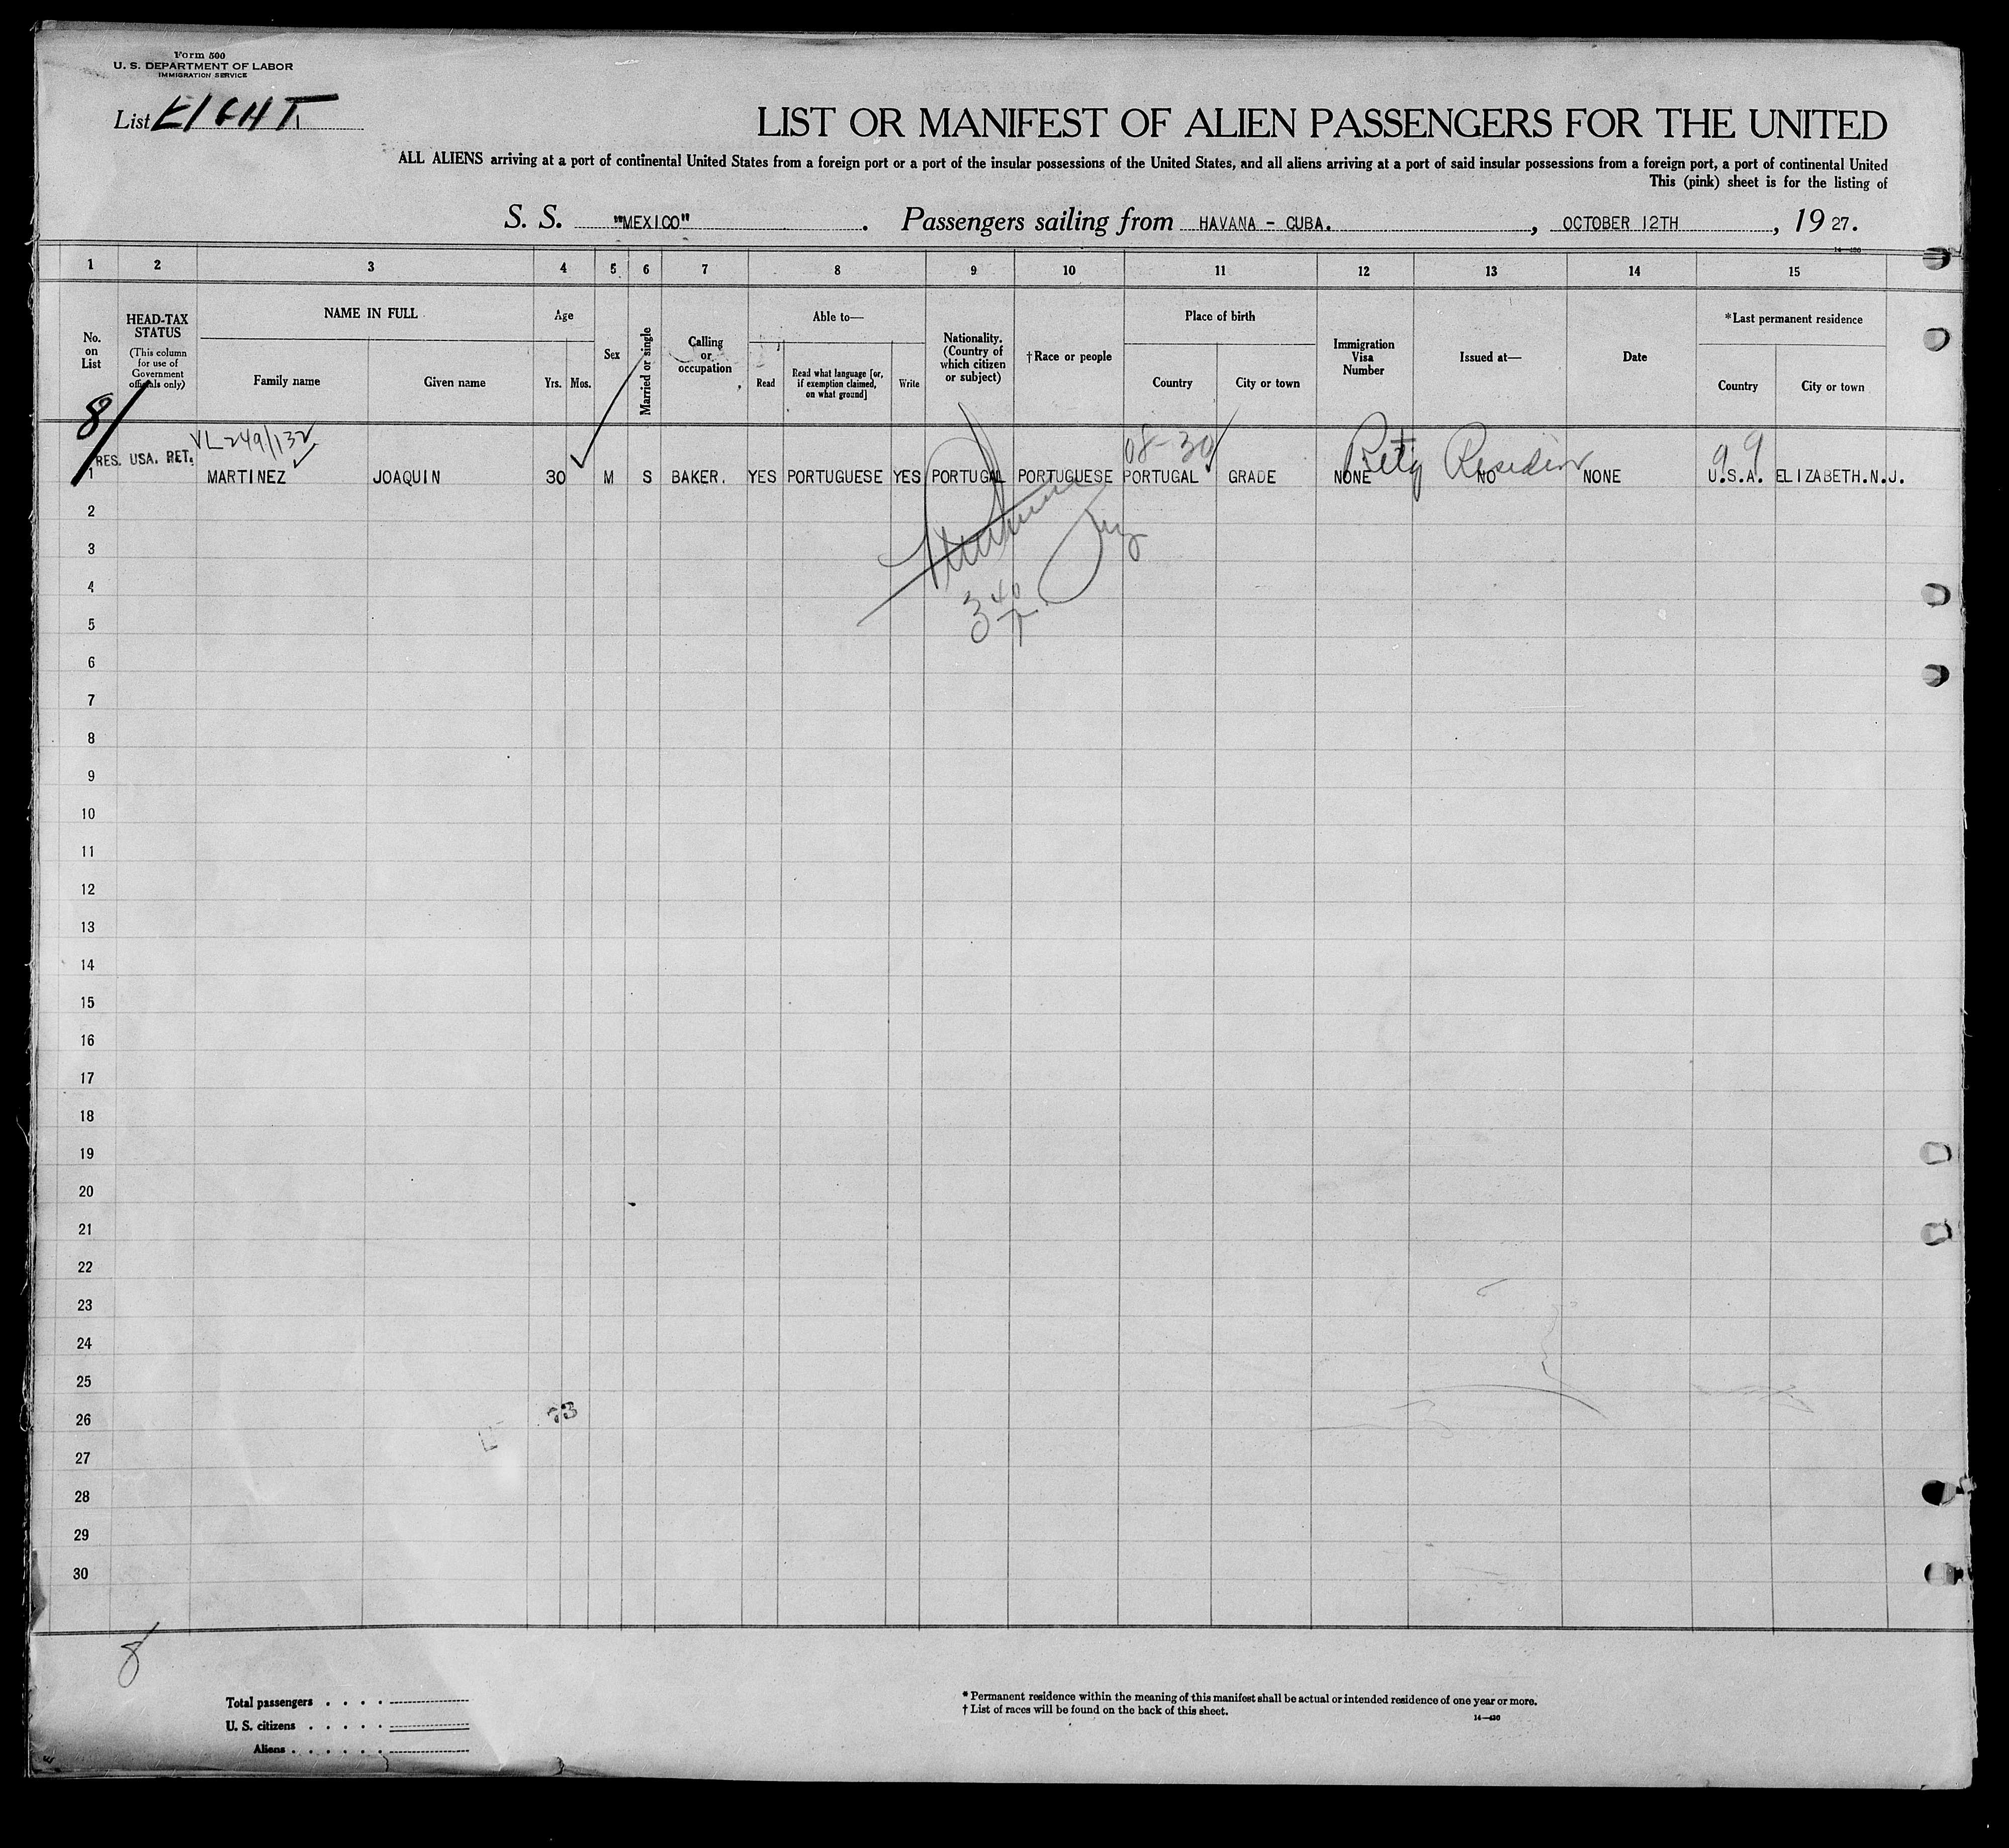 Form 500
U. S. DEPARTMENT OF LABOR
IMMIGRATION SERVICE
List EIGHT
LIST OR MANIFEST OF ALIEN PASSENGERS FOR THE UNITED
ALL ALIENS arriving at a port of continental United States from a foreign port or a port of the insular possessions of the United States, and all aliens arriving at a port of said insular possessions from a foreign port, a port of continental United
This (pink) sheet is for the listing of
S. S. "MEXICO". Passengers sailing from HAVANA - CUBA. , OCTOBER 12TH , 19 27.
14—430
1 2 3 4 5 6 7 8 9 10 11 12 13 14 15
No. on List
HEAD-TAX STATUS
(This column for use of Government officials only)
NAME IN FULL
Family name
Given name
Age
Yrs. Mos.
Sex
Married or single
Calling or occupation
Able to—
Read
Read what language [or, if exemption claimed, on what ground]
Write
Nationality. (Country of which citizen or subject)
†Race or people
Place of birth
Country
City or town
Immigration Visa Number
Issued at—
Date
*Last permanent residence
Country
City or town
8/
VL-249/132
08-30
99
RES. USA. RET.
1 MARTINEZ JOAQUIN 30 M S BAKER. YES PORTUGUESE YES PORTUGAL PORTUGUESE PORTUGAL GRADE NONE NO NONE U.S.A. ELIZABETH.N.J.
2
3
4
5
6
7
8
9
10
11
12
13
14
15
16
17
18
19
20
21
22
23
24
25
26
27
28
29
30
8
Total passengers . . . .
U. S. citizens . . . . .
Aliens . . . . . .
* Permanent residence within the meaning of this manifest shall be actual or intended residence of one year or more.
† List of races will be found on the back of this sheet.
14—430